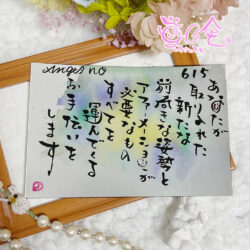 Angel NO
615
あなたが
取り入れた
新たな
前向きな姿勢と
アファーメーションが
必要なもの
すべてを
運んでくる
お手伝いを
します